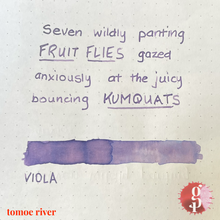 Seven wildly panting
FRUIT FLIES gazed
anxiously at the juicy
bouncing KUMQUATS
VIOLA
tomoe river
gp